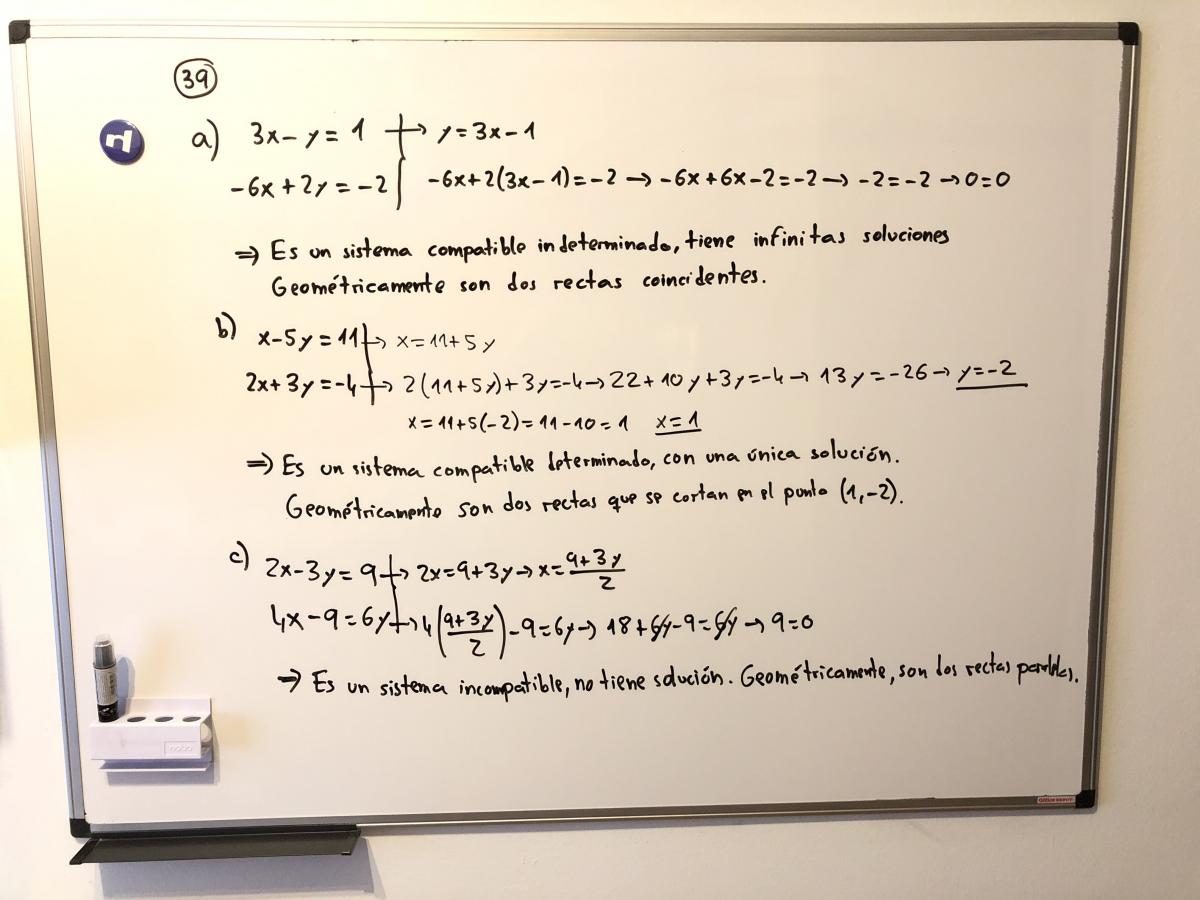 39
a) 3x-y=1 → y=3x-1
-6x+2y=-2 -6x+2(3x-1)=-2 → -6x+6x-2=-2 → -2=-2 → 0=0
⇒ Es un sistema compatible indeterminado, tiene infinitas soluciones
Geométricamente son dos rectas coincidentes.
b) x-5y=11 → x=11+5y
2x+3y=-4 → 2(11+5y)+3y=-4 → 22+10y+3y=-4 → 13y=-26 → y=-2
x=11+5(-2)=11-10=1 x=1
⇒ Es un sistema compatible determinado, con una única solución.
Geométricamente son dos rectas que se cortan en el punto (1,-2).
c) 2x-3y=9 → 2x=9+3y → x=(9+3y)/2
4x-9=6y → 4((9+3y)/2)-9=6y → 18+6y-9=6y → 9=0
→ Es un sistema incompatible, no tiene solución. Geométricamente, son dos rectas paralelas.
nobo
Office DEPOT